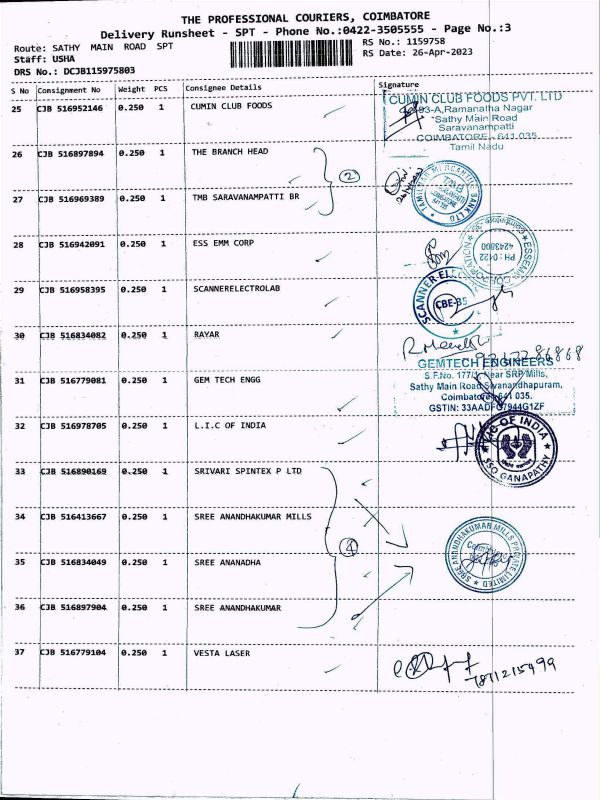 THE PROFESSIONAL COURIERS, COIMBATORE
Delivery Runsheet - SPT - Phone No.:0422-3505555 - Page No.:3
Route: SATHY MAIN ROAD SPT
RS No.: 1159758
Staff: USHA
RS Date: 26-Apr-2023
DRS No.: DCJB115975803
S No Consignment No Weight PCS Consignee Details Signature
25 CJB 516952146 0.250 1 CUMIN CLUB FOODS
CUMIN CLUB FOODS PVT. LTD
93-A, Ramanatha Nagar
Sathy Main Road
Saravanampatti
COIMBATORE - 641 035.
Tamil Nadu
26 CJB 516897894 0.250 1 THE BRANCH HEAD
2
27 CJB 516969389 0.250 1 TMB SARAVANAMPATTI BR
TAMILNAD MERCANTILE BANK LTD
28 CJB 516942091 0.250 1 ESS EMM CORP
ESSEMM CORPORATION
Coimbatore
PH : 0422
4243800
29 CJB 516958395 0.250 1 SCANNERELECTROLAB
CBE-35
30 CJB 516834082 0.250 1 RAYAR
31 CJB 516779081 0.250 1 GEM TECH ENGG
GEMTECH ENGINEERS
S.F.No. 177/1, Near SRP Mills,
Sathy Main Road, Sivanandhapuram,
Coimbatore - 641 035.
32 CJB 516978705 0.250 1 L.I.C OF INDIA
LIC OF INDIA
SSO GANAPATHY
33 CJB 516890169 0.250 1 SRIVARI SPINTEX P LTD
34 CJB 516413667 0.250 1 SREE ANANDHAKUMAR MILLS
4
SREE ANANDHAKUMAR MILLS PRIVATE LIMITED
35 CJB 516834049 0.250 1 SREE ANANADHA
36 CJB 516897904 0.250 1 SREE ANANDHAKUMAR
37 CJB 516779104 0.250 1 VESTA LASER
7871215499